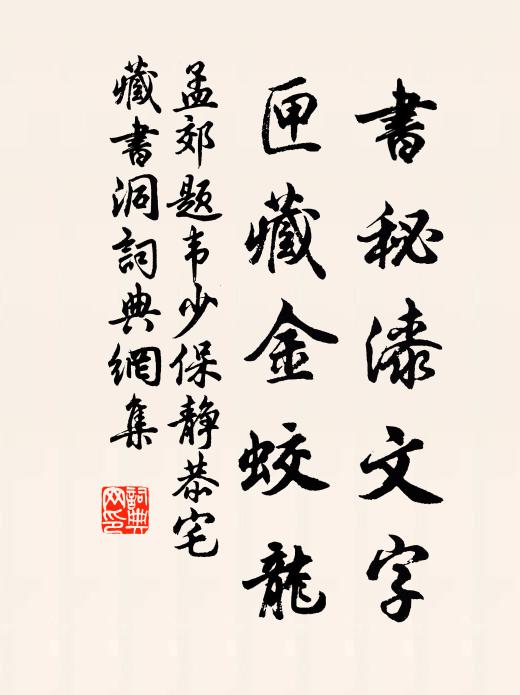 書秘漆文字
匣藏金蛟龍
孟郊题韦少保静恭宅
藏書洞詞典網集
詞典網印